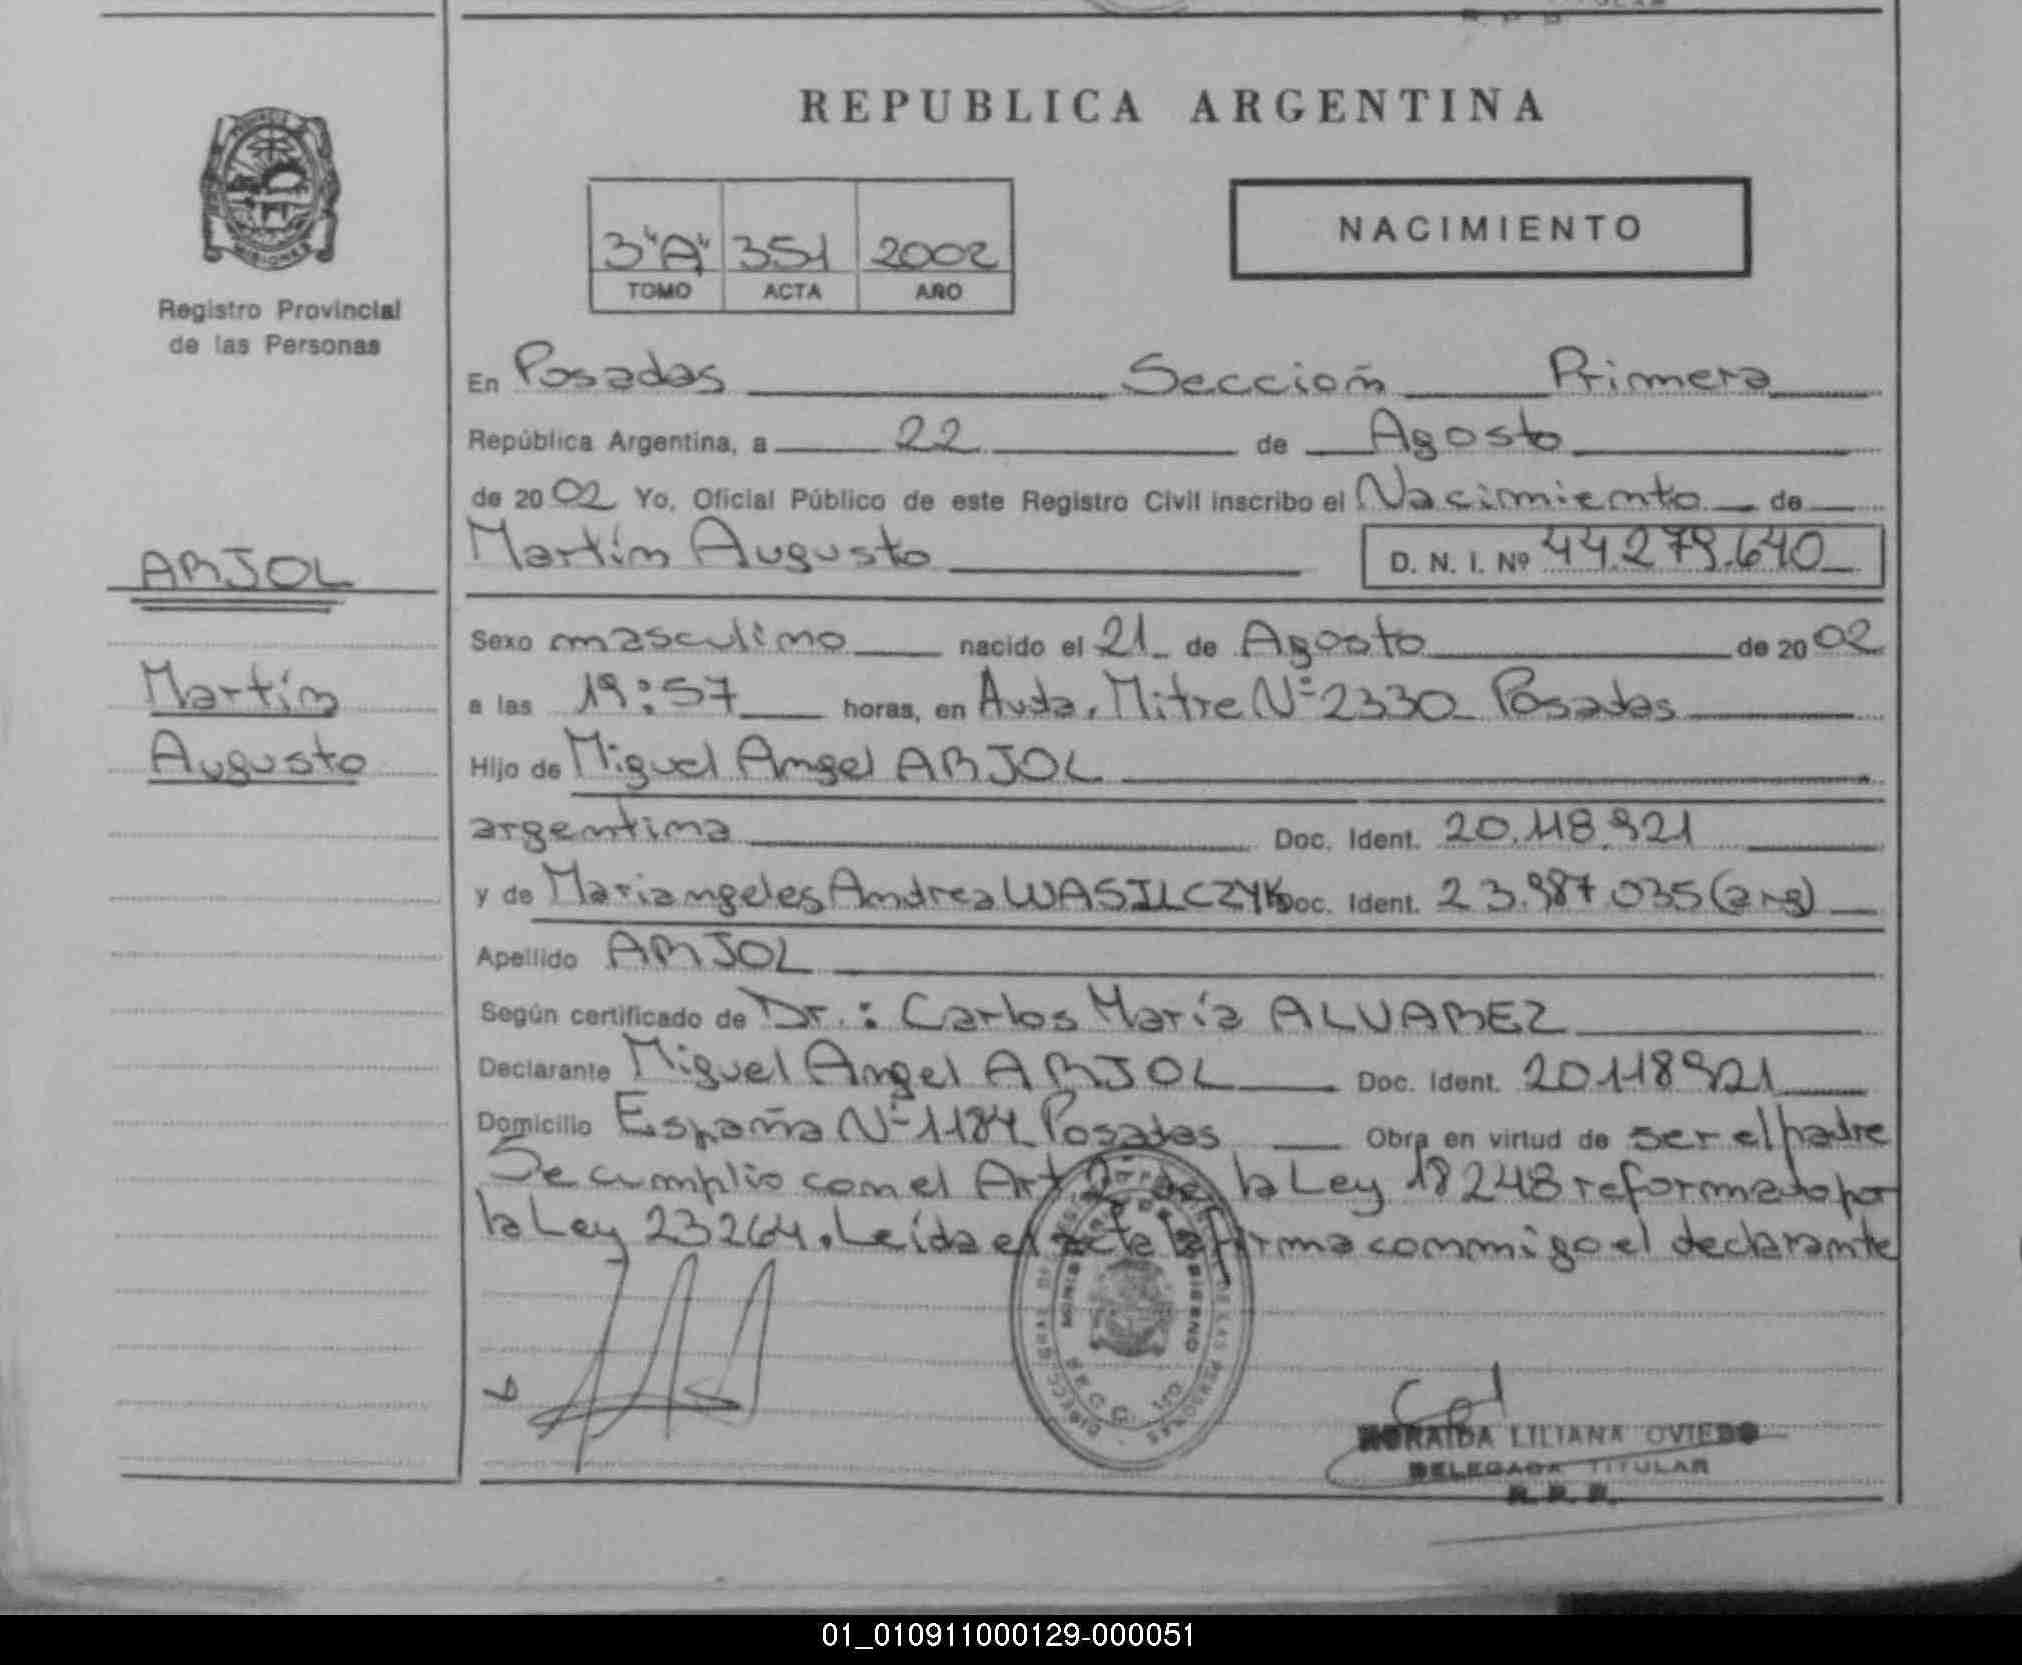 REPUBLICA ARGENTINA
NACIMIENTO
3"A" 351 2002
TOMO ACTA AÑO
MISIONES
Registro Provincial
de las Personas
En Posadas Sección Primera
República Argentina, a 22 de Agosto
de 2002 Yo, Oficial Público de este Registro Civil inscribo el Nacimiento de
Martín Augusto D. N. I. Nº 44.279.640
ARJOL
Martín
Augusto
Sexo masculino nacido el 21 de Agosto de 2002
a las 19:57 horas, en Avda. Mitre Nº 2330 Posadas
Hijo de Miguel Angel ARJOL
argentina Doc. Ident. 20.118.921
y de Mariangeles Andrea WASILCZYK Doc. Ident. 23.987.035 (arg)
Apellido ARJOL
Según certificado de Dr.: Carlos María ALVAREZ
Declarante Miguel Angel ARJOL Doc. Ident. 20.118921
Domicilio España Nº 1184 Posadas Obra en virtud de ser el padre
Se cumplio con el Art de la Ley 18248 reformado por
la Ley 23264. Leída el acta la firma conmigo el declarante
MINISTERIO DE GOBIERNO
DE LAS PERSONAS
LILIANA OVIEDO
DELEGADA TITULAR
R. P. P.
01_010911000129-000051